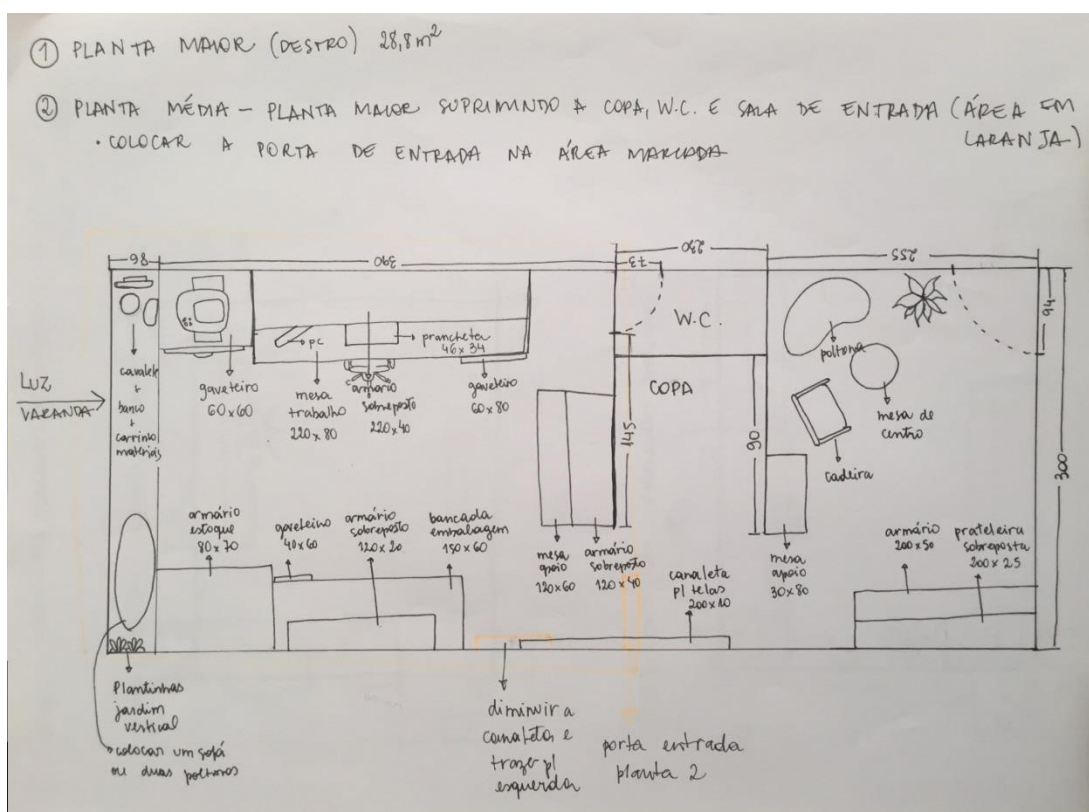 ① PLANTA MAIOR (DESTRO) 28,8m²
② PLANTA MÉDIA – PLANTA MAIOR SUPRIMINDO A COPA, W.C. E SALA DE ENTRADA (ÁREA EM
LARANJA)
• COLOCAR A PORTA DE ENTRADA NA ÁREA MARCADA
98
390
73
230
255
LUZ
VARANDA
cavalete
+
banco
+
carrinho
materiais
gaveteiro
60x60
pc
mesa
trabalho
220x80
prancheta
46x34
armário
sobreposto
220x40
gaveteiro
60x80
W.C.
COPA
145
90
poltrona
mesa de
centro
cadeira
94
300
armário
estoque
80x70
gaveteiro
40x60
armário
sobreposto
120x20
bancada
embalagem
150x60
mesa
apoio
120x60
armário
sobreposto
120x40
canaleta
p/ telas
200x10
mesa
apoio
30x80
armário
200x50
prateleira
sobreposta
200x25
Plantinhas
jardim
vertical
colocar um sofá
ou duas poltronas
diminuir a
canaleta e
trazer p/
esquerda
porta entrada
planta 2